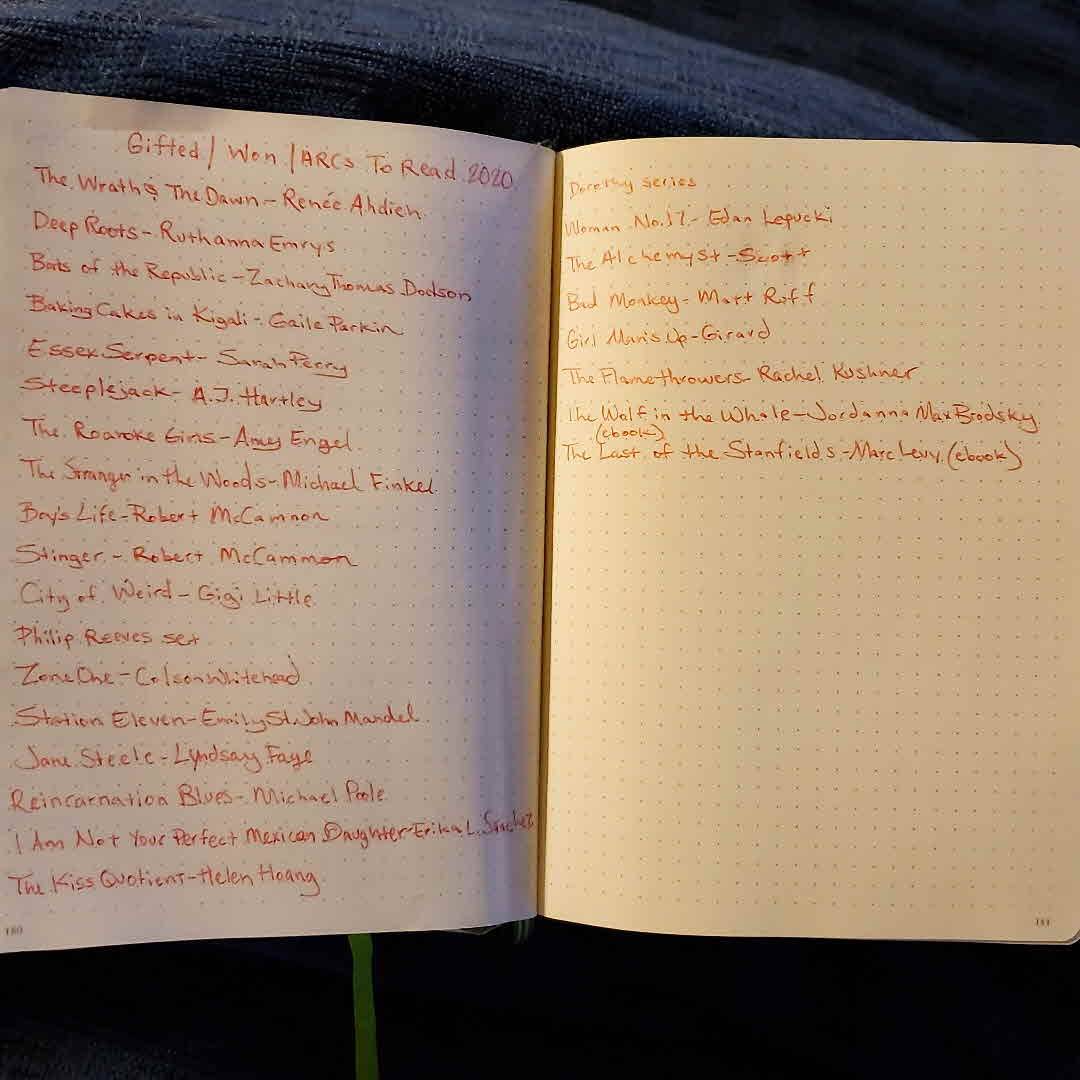 Gifted / Won / ARCs To Read 2020
The Wrath & The Dawn - Renée Ahdieh
Deep Roots - Ruthanna Emrys
Bats of the Republic - Zachary Thomas Dodson
Baking Cakes in Kigali - Gaile Parkin
Essex Serpent - Sarah Perry
Steeplejack - A.J. Hartley
The Roanoke Girls - Amy Engel
The Stranger in the Woods - Michael Finkel
Boy's Life - Robert McCammon
Stinger - Robert McCammon
City of Weird - Gigi Little
Philip Reeves set
Zone One - Colson Whitehead
Station Eleven - Emily St. John Mandel
Jane Steele - Lyndsay Faye
Reincarnation Blues - Michael Poole
I Am Not Your Perfect Mexican Daughter - Erika L. Sanchez
The Kiss Quotient - Helen Hoang
180
Dorothy series
Woman No. 17 - Edan Lepucki
The Alchemyst - Scott
Bad Monkey - Matt Ruff
Girl Mans Up - Girard
The Flamethrowers - Rachel Kushner
The Wolf in the Whale - Jordanna Max Brodsky
(ebook)
The Last of the Stanfields - Marc Levy (ebook)
181